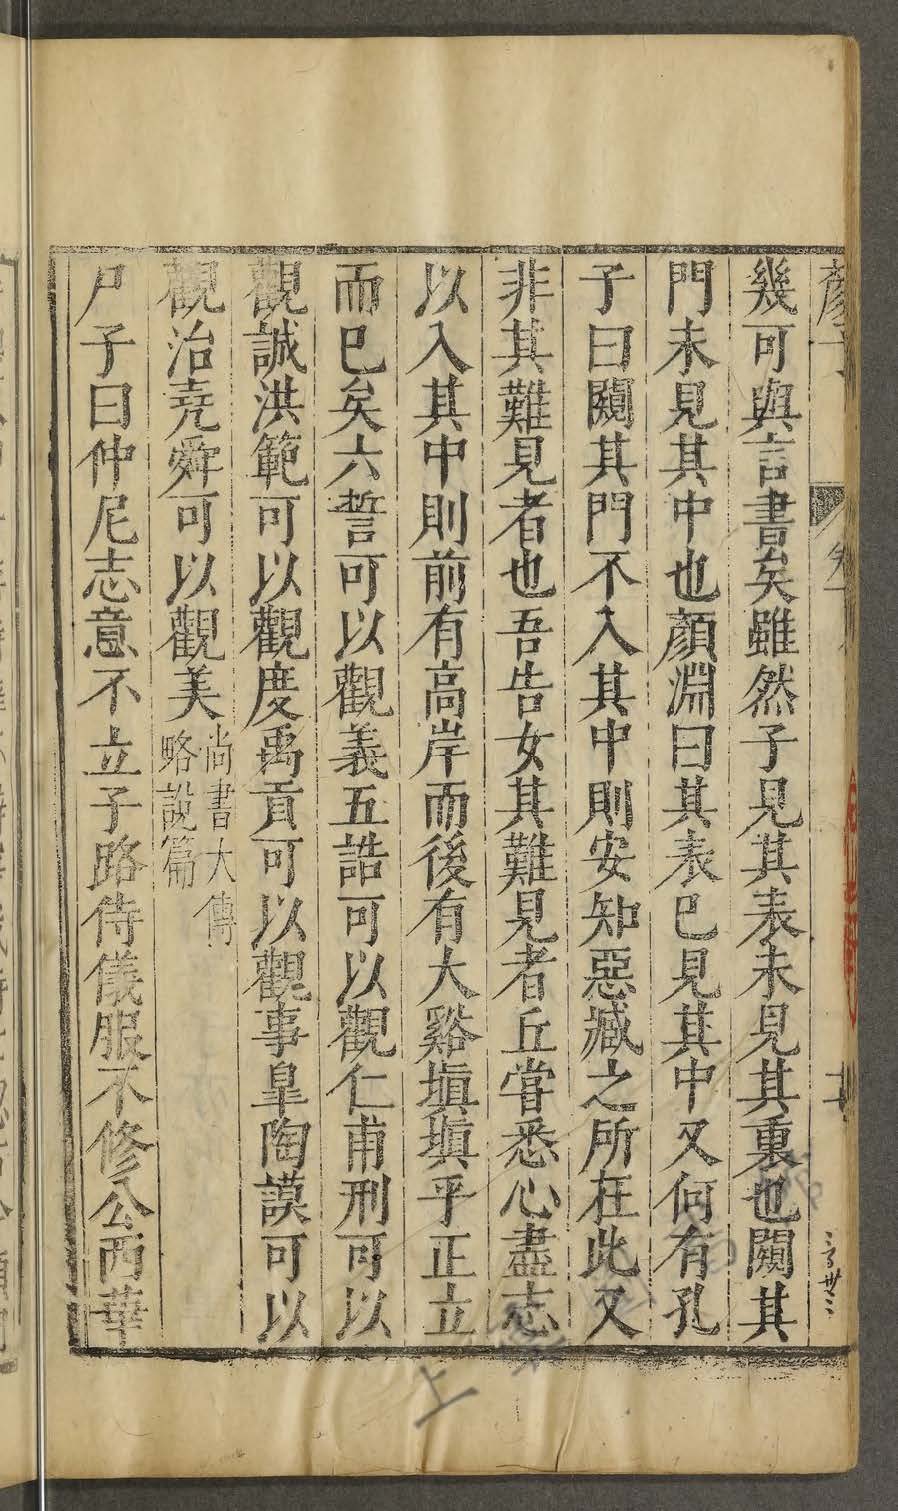 幾可與言書矣雖然子見其表未見其裏也闚其
門未見其中也顏淵曰其表已見其中又何有孔
子曰闚其門不入其中則安知惡臧之所在此又
非其難見者也吾告女其難見者丘嘗悉心盡志
以入其中則前有高岸而後有大谿塡塡乎正立
而已矣六誓可以觀義五誥可以觀仁甫刑可以
觀誠洪範可以觀度禹貢可以觀事皐陶謨可以
觀治堯舜可以觀美尚書大傳
略說篇
尸子曰仲尼志意不立子路侍儀服不修公西華